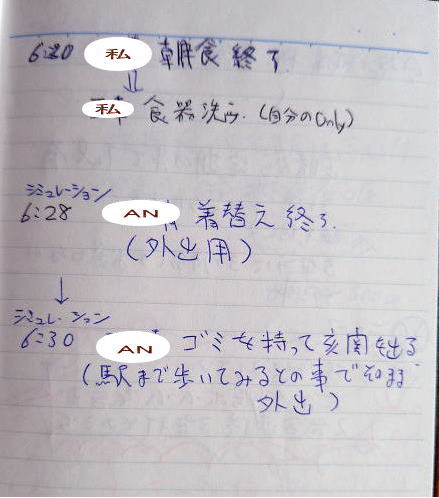 6:20 私 朝食終了
⇓
私 食器洗う.(自分のOnly)
シミュレーション
6:28 AN 着替え終了.
(外出用)
↓
シミュレーション
6:30 AN ゴミを持って玄関を出る
(駅まで歩いてみるとの事でそのまま
外出)